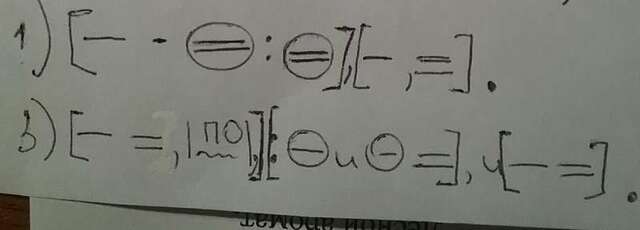 1) [— - (=) : (=)], [—, =].
3) [— =, |ПО|,] [: ⊖ и ⊖ =], и [— =].